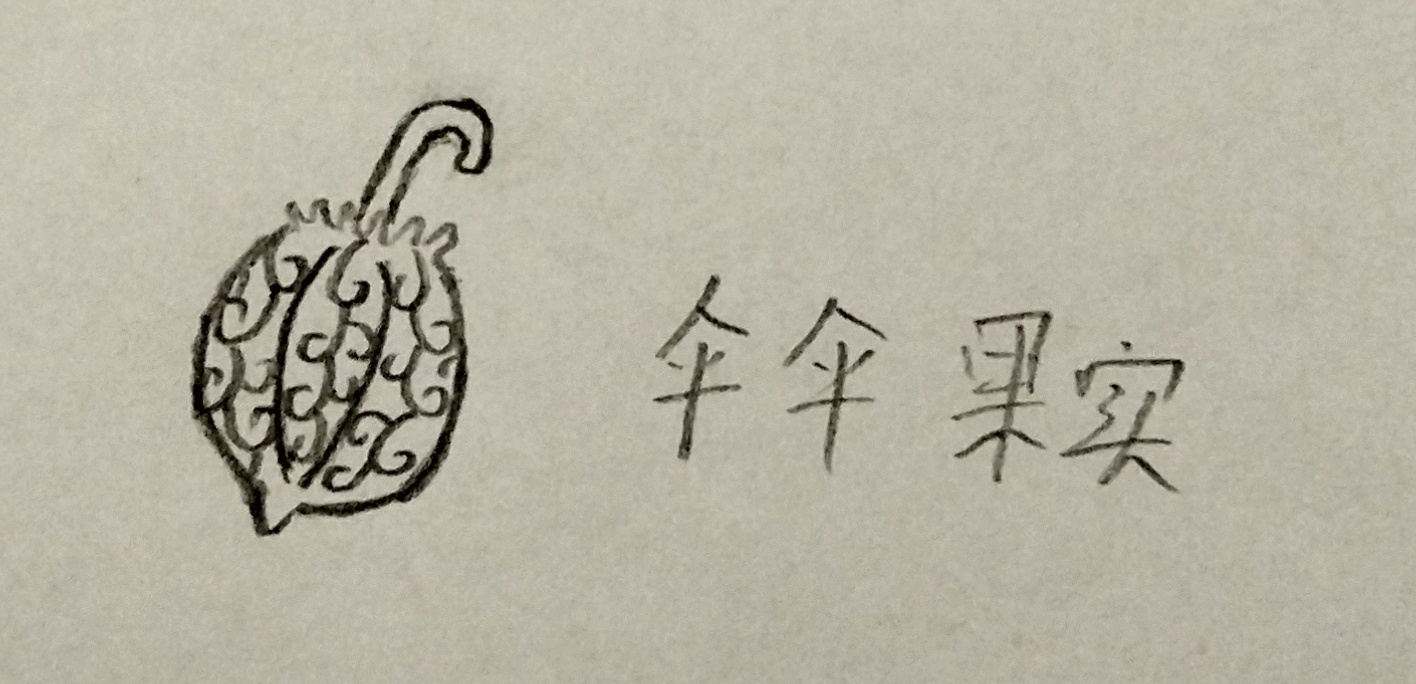 伞伞果实